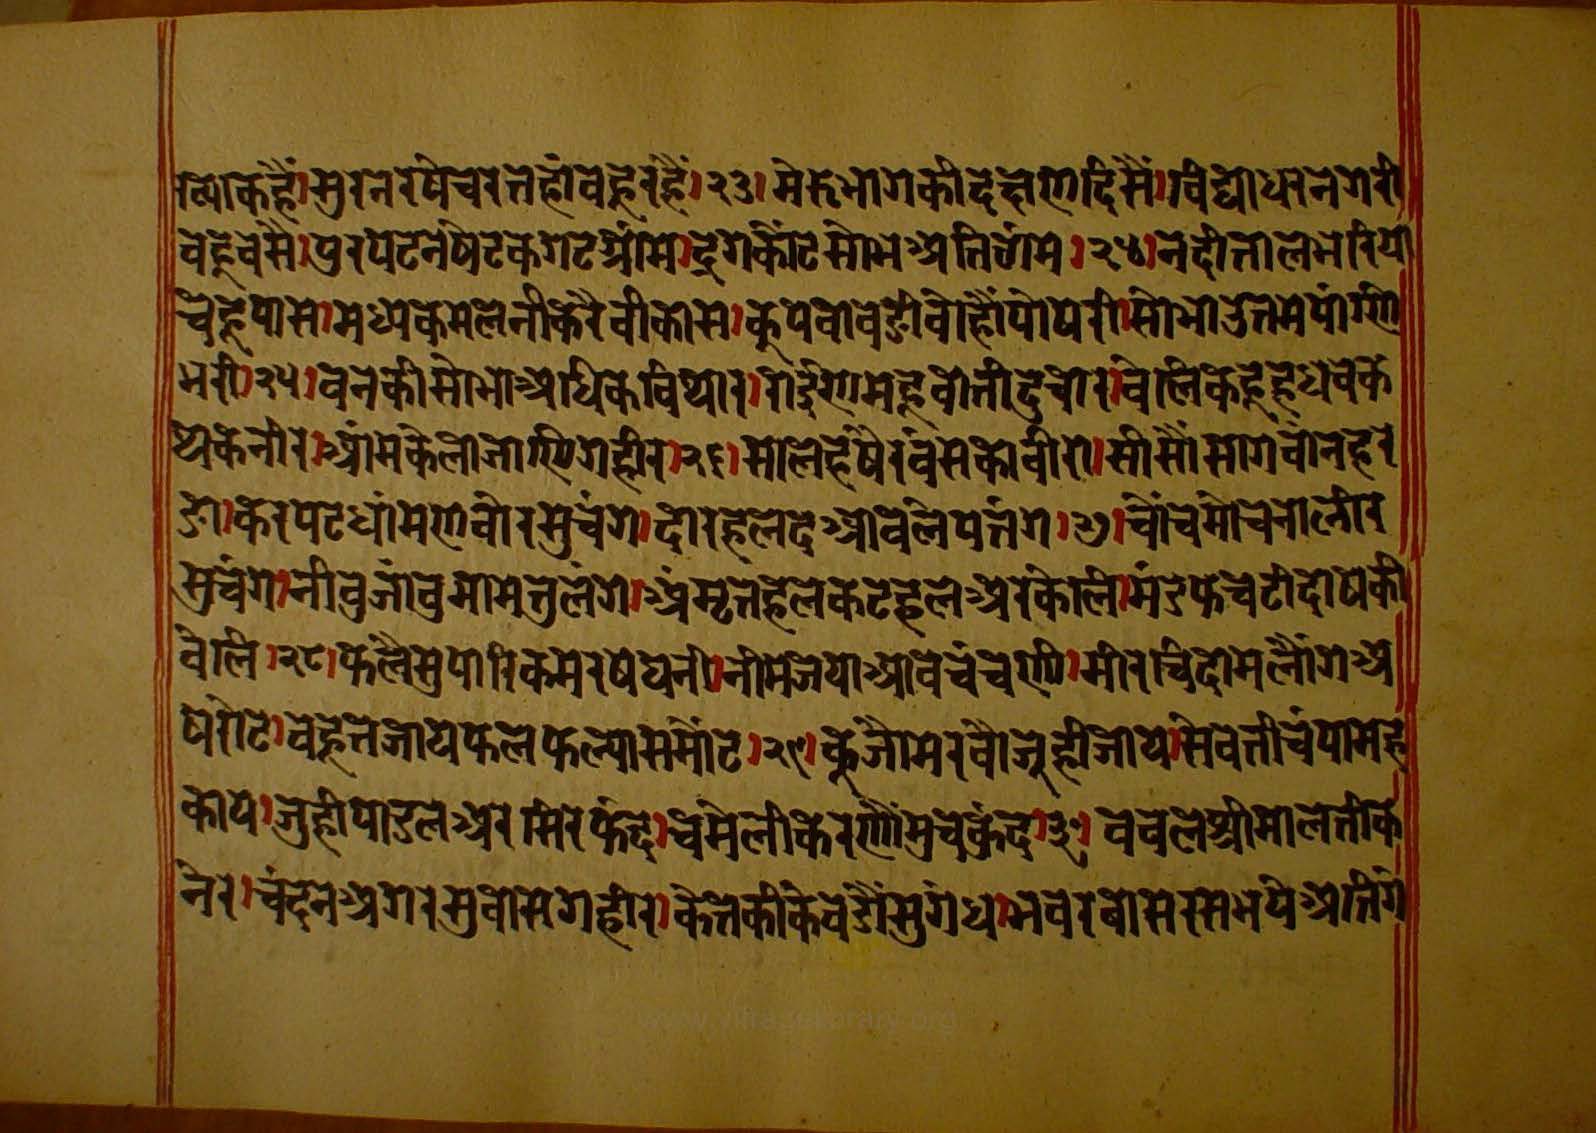 ल्योकहैं।सुरनरषेचरतहांबहूरहैं।२३।मेरुभागकीदक्षणदिसैं।विद्याधरनगरी
बहूबसैं।पुरपटनषेटकगटग्रांम।दूगकोटसोभअतिठांम।२४।नदीतालभरिया
चहूपास।मध्यकमलनीकरैवीकास।कूपबावडीबोहौपोषरी।सोभाउतमपांणी
भरी।२५।बनकीसोभाअधिकविथार।राईणमहूवातीदुचार।वेलिकहूहूधवक
थकनीर।आंमकेलाजाणिगहीर।२६।सालहषैरबंसकोवीरा।सीसौंसागवांनहर
डा।करपटधांमणबोरसुचंग।दारहलदआवलपतंग।२७।चौंचमोचनालीर
सुचंग।नीबुजांबुमामतुलंग।अंमृतहलकटहलअरकेलि।मंडफचटीदाषकी
वेलि।२८।फलैसुपारिकमरषघनी।नीमजयाआवचंचणी।मीरचिदामलौंगअ
षरोट।बहूतजायफलफल्यासमोंट।२९।कूजौमरवौजूहीजाय।सेवतीचंपामह
काय।जुहीपाडलअरसिरफंदे।चमेलीकरणौंमुचकुंद।३०।बवलश्रीमालतीक
नेर।चंदनअगरसुबासगहीर।केतकीकेवडौंसुगंध।भवरबासरसभषेअतिगं